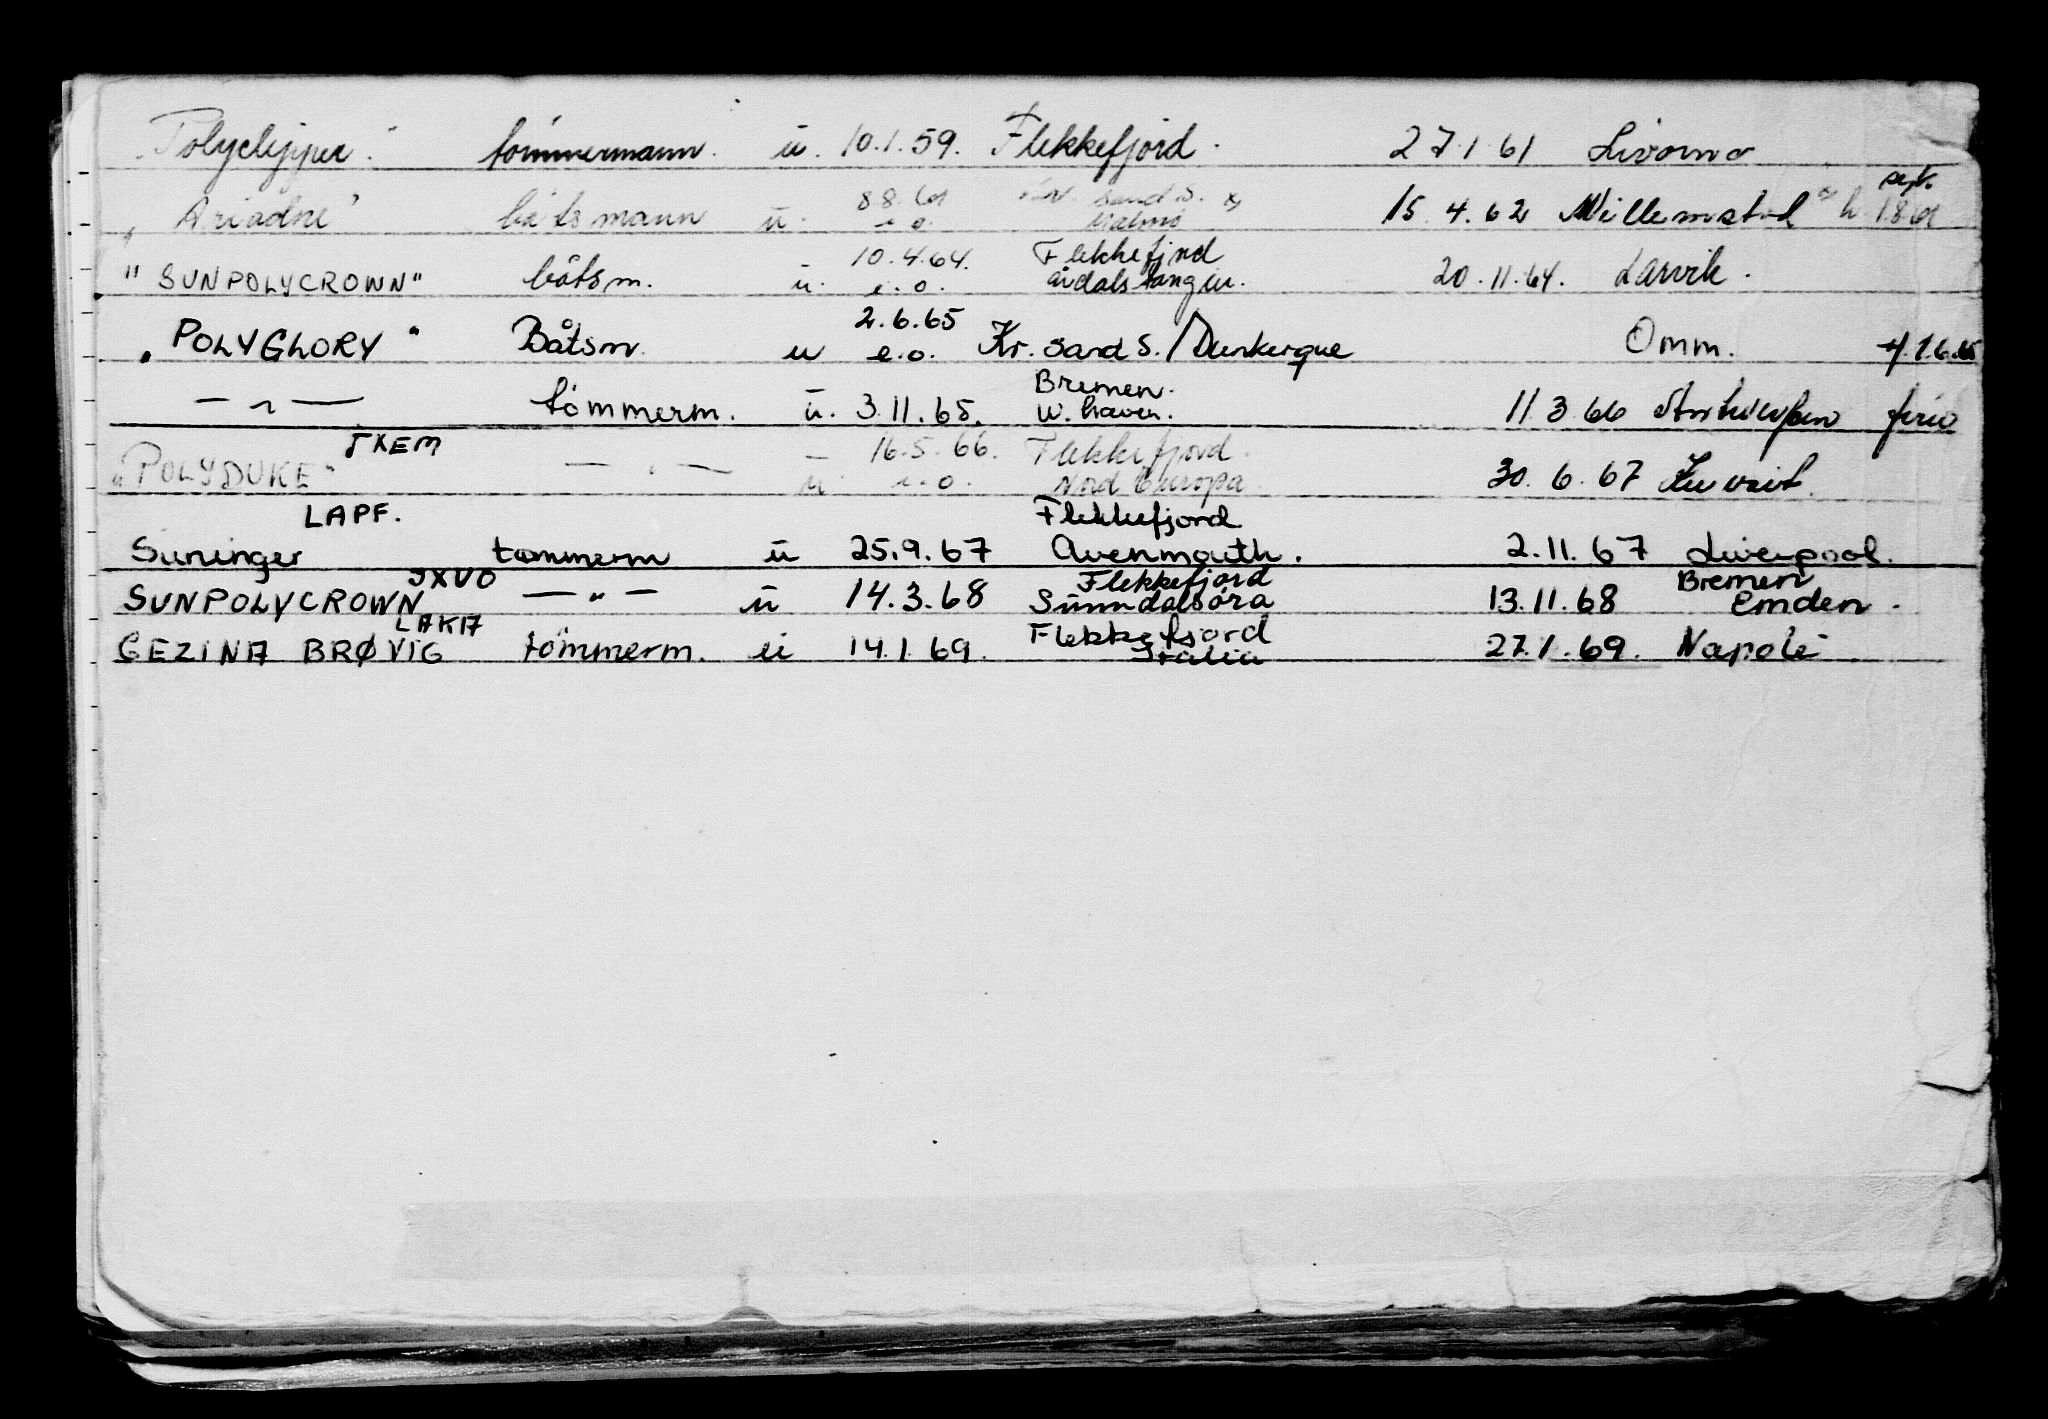 "Polyclipper" tömmermann. ü. 10.1.59. Flekkefjord. 27.1.61 Livorno
"Ariadne" båtsmann ü. 8.8.61 e.o. Kr. Sand S. Malmö 15.4.62 Willemstad
"SUNPOLYCROWN" båtsm. ü. 10.4.64. e.o. Flekkefjord årdalstangen. 20.11.64. Larvik.
"POLYGLORY" Båtsm. u 2.6.65 e.o. Kr. Sand S./Dunkerque Omm.
— " — tömmerm. ü. 3.11.65. Bremen. W. haven. 11.3.66 Antwerpen ferie
"POLYDUKE" JXEM — " — ü 16.5.66. e.o. Flekkefjord. Nord Europa. 30.6.67 Kuwait.
Suninger LAPF. tømmerm ü 25.9.67 Flekkefjord Avenmouth. 2.11.67 Liverpool.
SUNPOLYCROWN JXVO — " — ü 14.3.68 Flekkefjord Sunndalsöra 13.11.68 Bremen Emden.
GEZINA BRØVIG LAKA tömmerm. ü 14.1.69. Flekkefjord Italia 27.1.69. Napoli